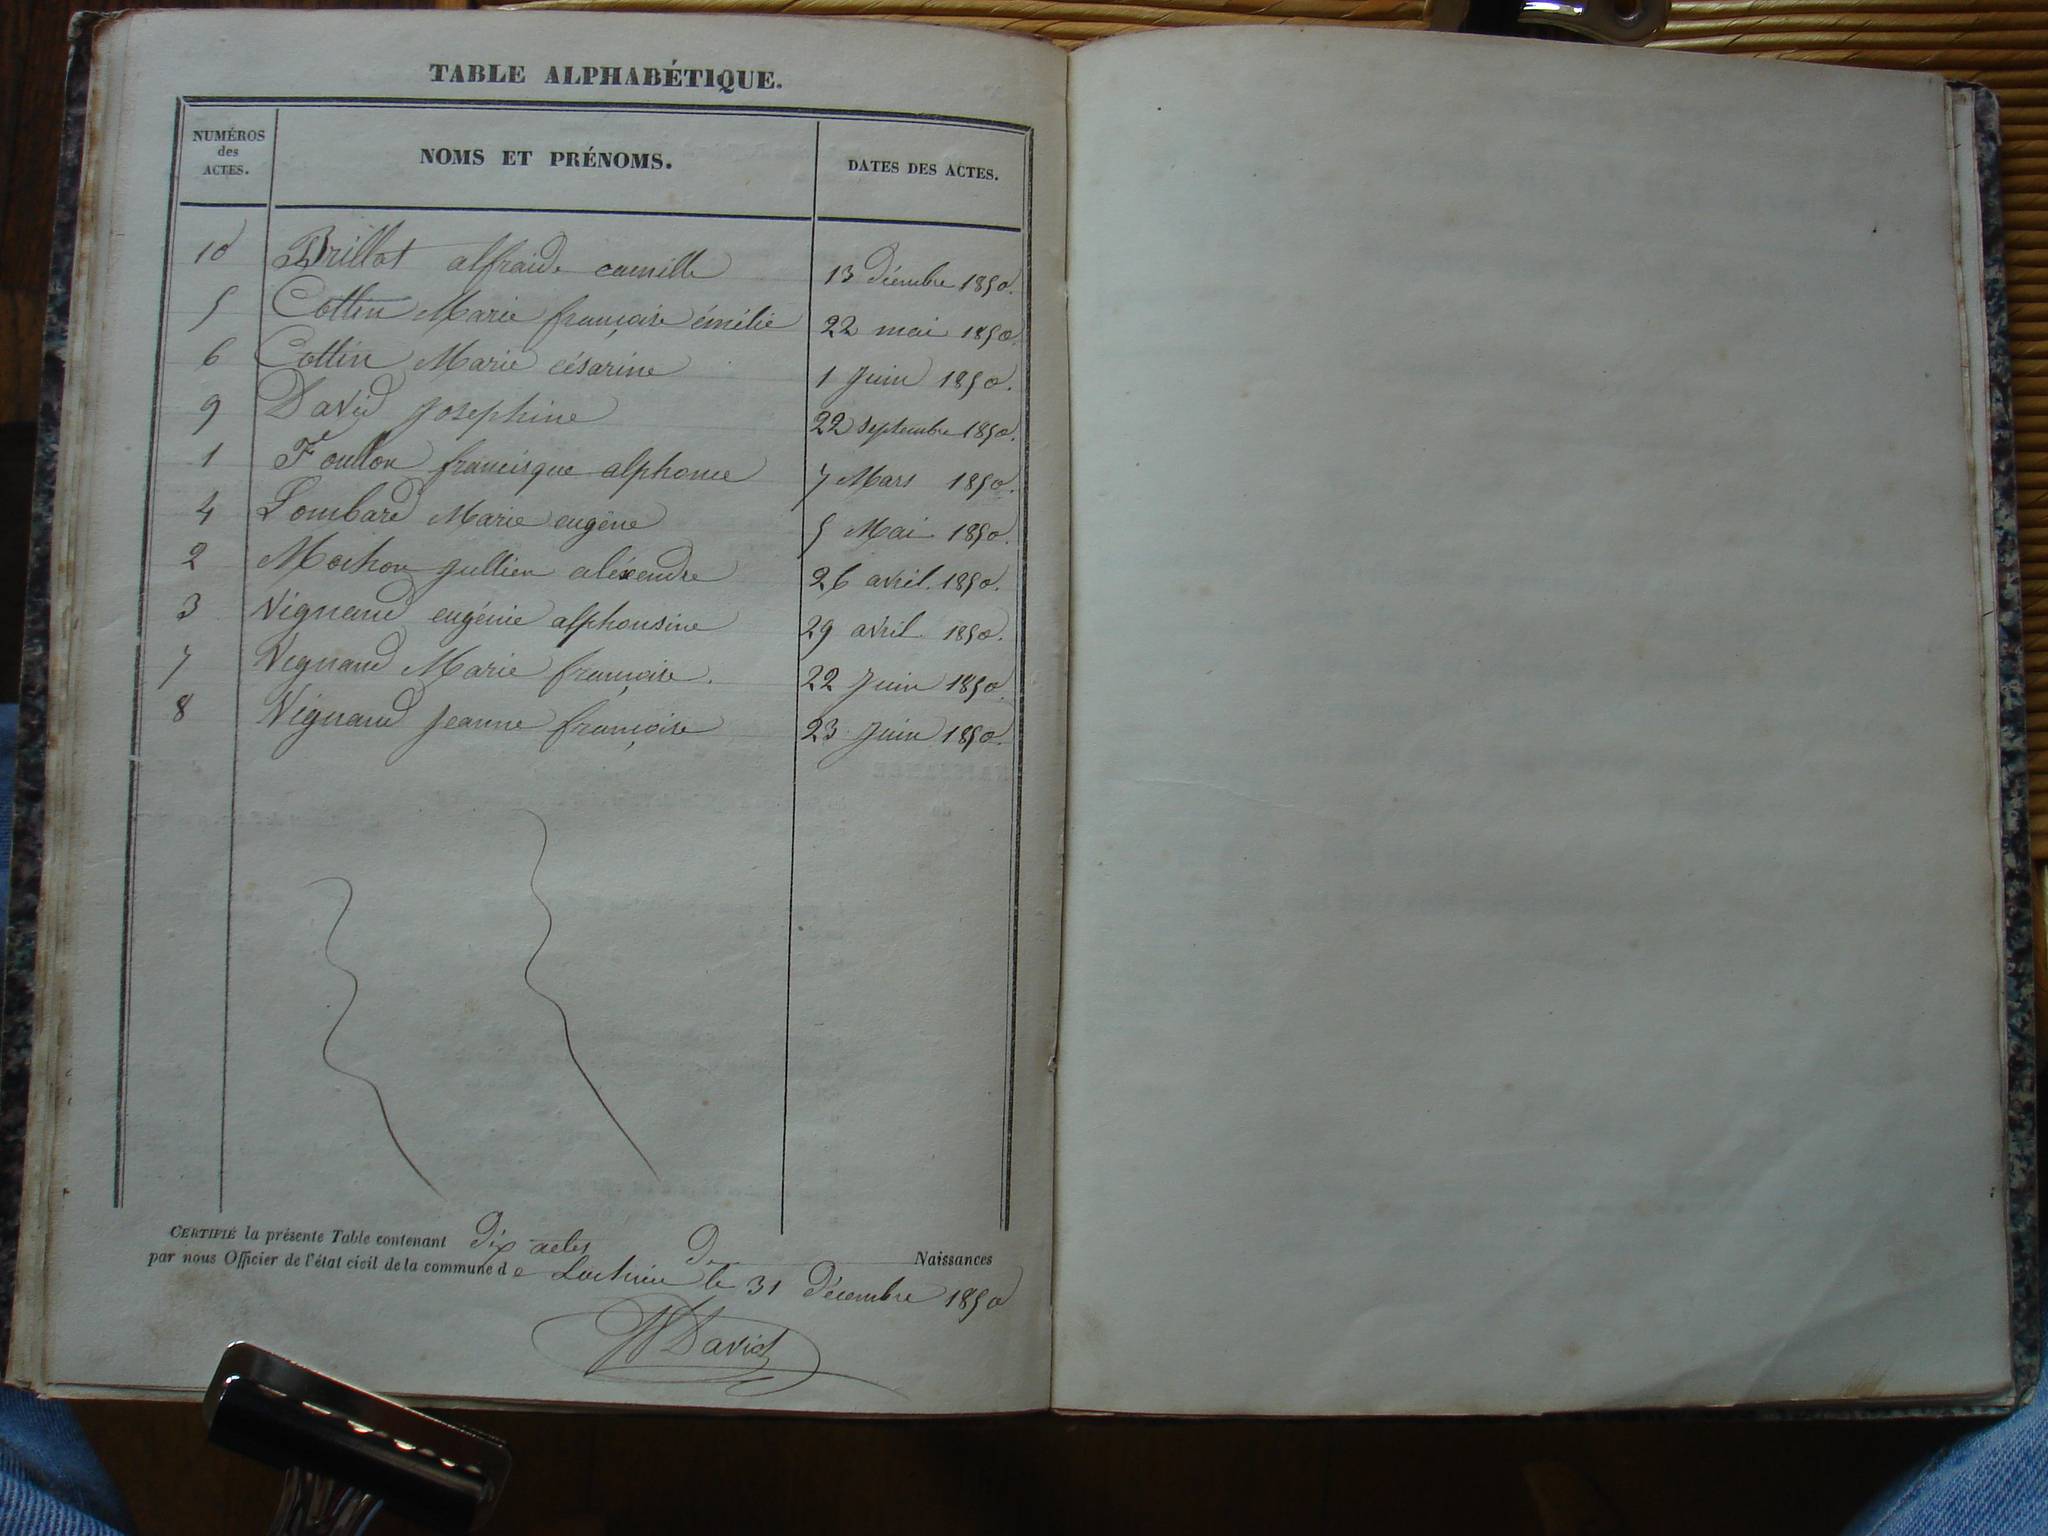 TABLE ALPHABÉTIQUE.
NUMÉROS
des
ACTES.
NOMS ET PRÉNOMS.
DATES DES ACTES.
10 Brillat alfraide camille 13 Décembre 1850.
5 Cottin Marie françoise émélie 22 mai 1850.
6 Cottin Marie césarine 1 Juin 1850.
9 David Josephine 22 septembre 1850.
1 Foullon francisque alphonce 7 Mars 1850.
4 Lombard Marie eugène 5 Mai 1850.
2 Mochon jullien aléxendre 26 avril. 1850.
3 Vignand eugénie alphonsine 29 avril 1850.
7 Vignand Marie françoise. 22 Juin 1850.
8 Vignand Jeanne françoise 23 Juin 1850.
CERTIFIÉ la présente Table contenant Dix actes De Naissances
par nous Officier de l'état civil de la commune de le 31 Décembre 1850
David